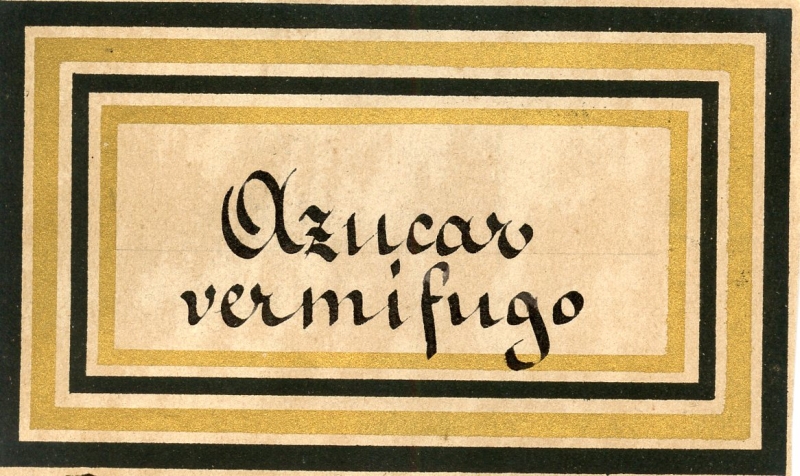 Azucar
vermifugo